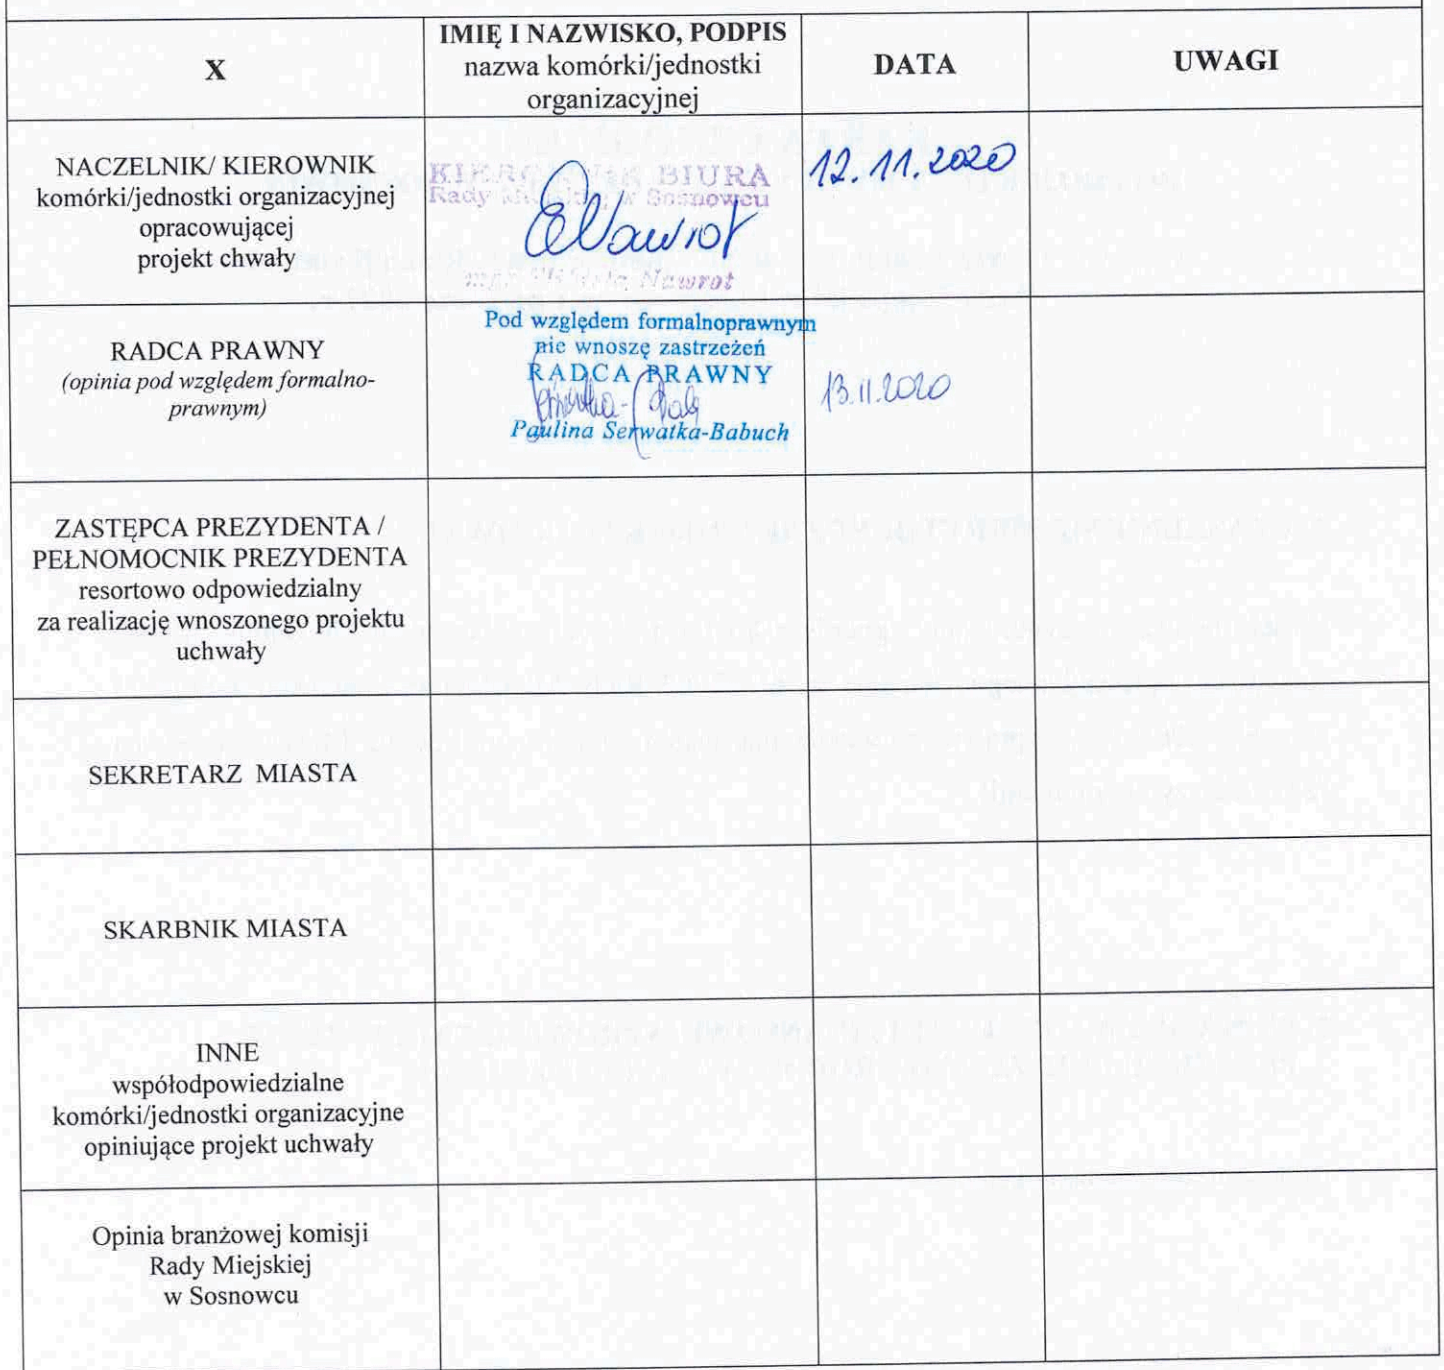 X
IMIĘ I NAZWISKO, PODPIS
nazwa komórki/jednostki
organizacyjnej
DATA
UWAGI
NACZELNIK/ KIEROWNIK
komórki/jednostki organizacyjnej
opracowującej
projekt chwały
KIEROWNIK BIURA
Rady Miejskiej w Sosnowcu
ENawrot
mgr Nawrot
12.11.2020
RADCA PRAWNY
(opinia pod względem formalno-
prawnym)
Pod względem formalnoprawnym
nie wnoszę zastrzeżeń
RADCA PRAWNY
Paulina Serwatka-Babuch
13.11.2020
ZASTĘPCA PREZYDENTA /
PEŁNOMOCNIK PREZYDENTA
resortowo odpowiedzialny
za realizację wnoszonego projektu
uchwały
SEKRETARZ MIASTA
SKARBNIK MIASTA
INNE
współodpowiedzialne
komórki/jednostki organizacyjne
opiniujące projekt uchwały
Opinia branżowej komisji
Rady Miejskiej
w Sosnowcu